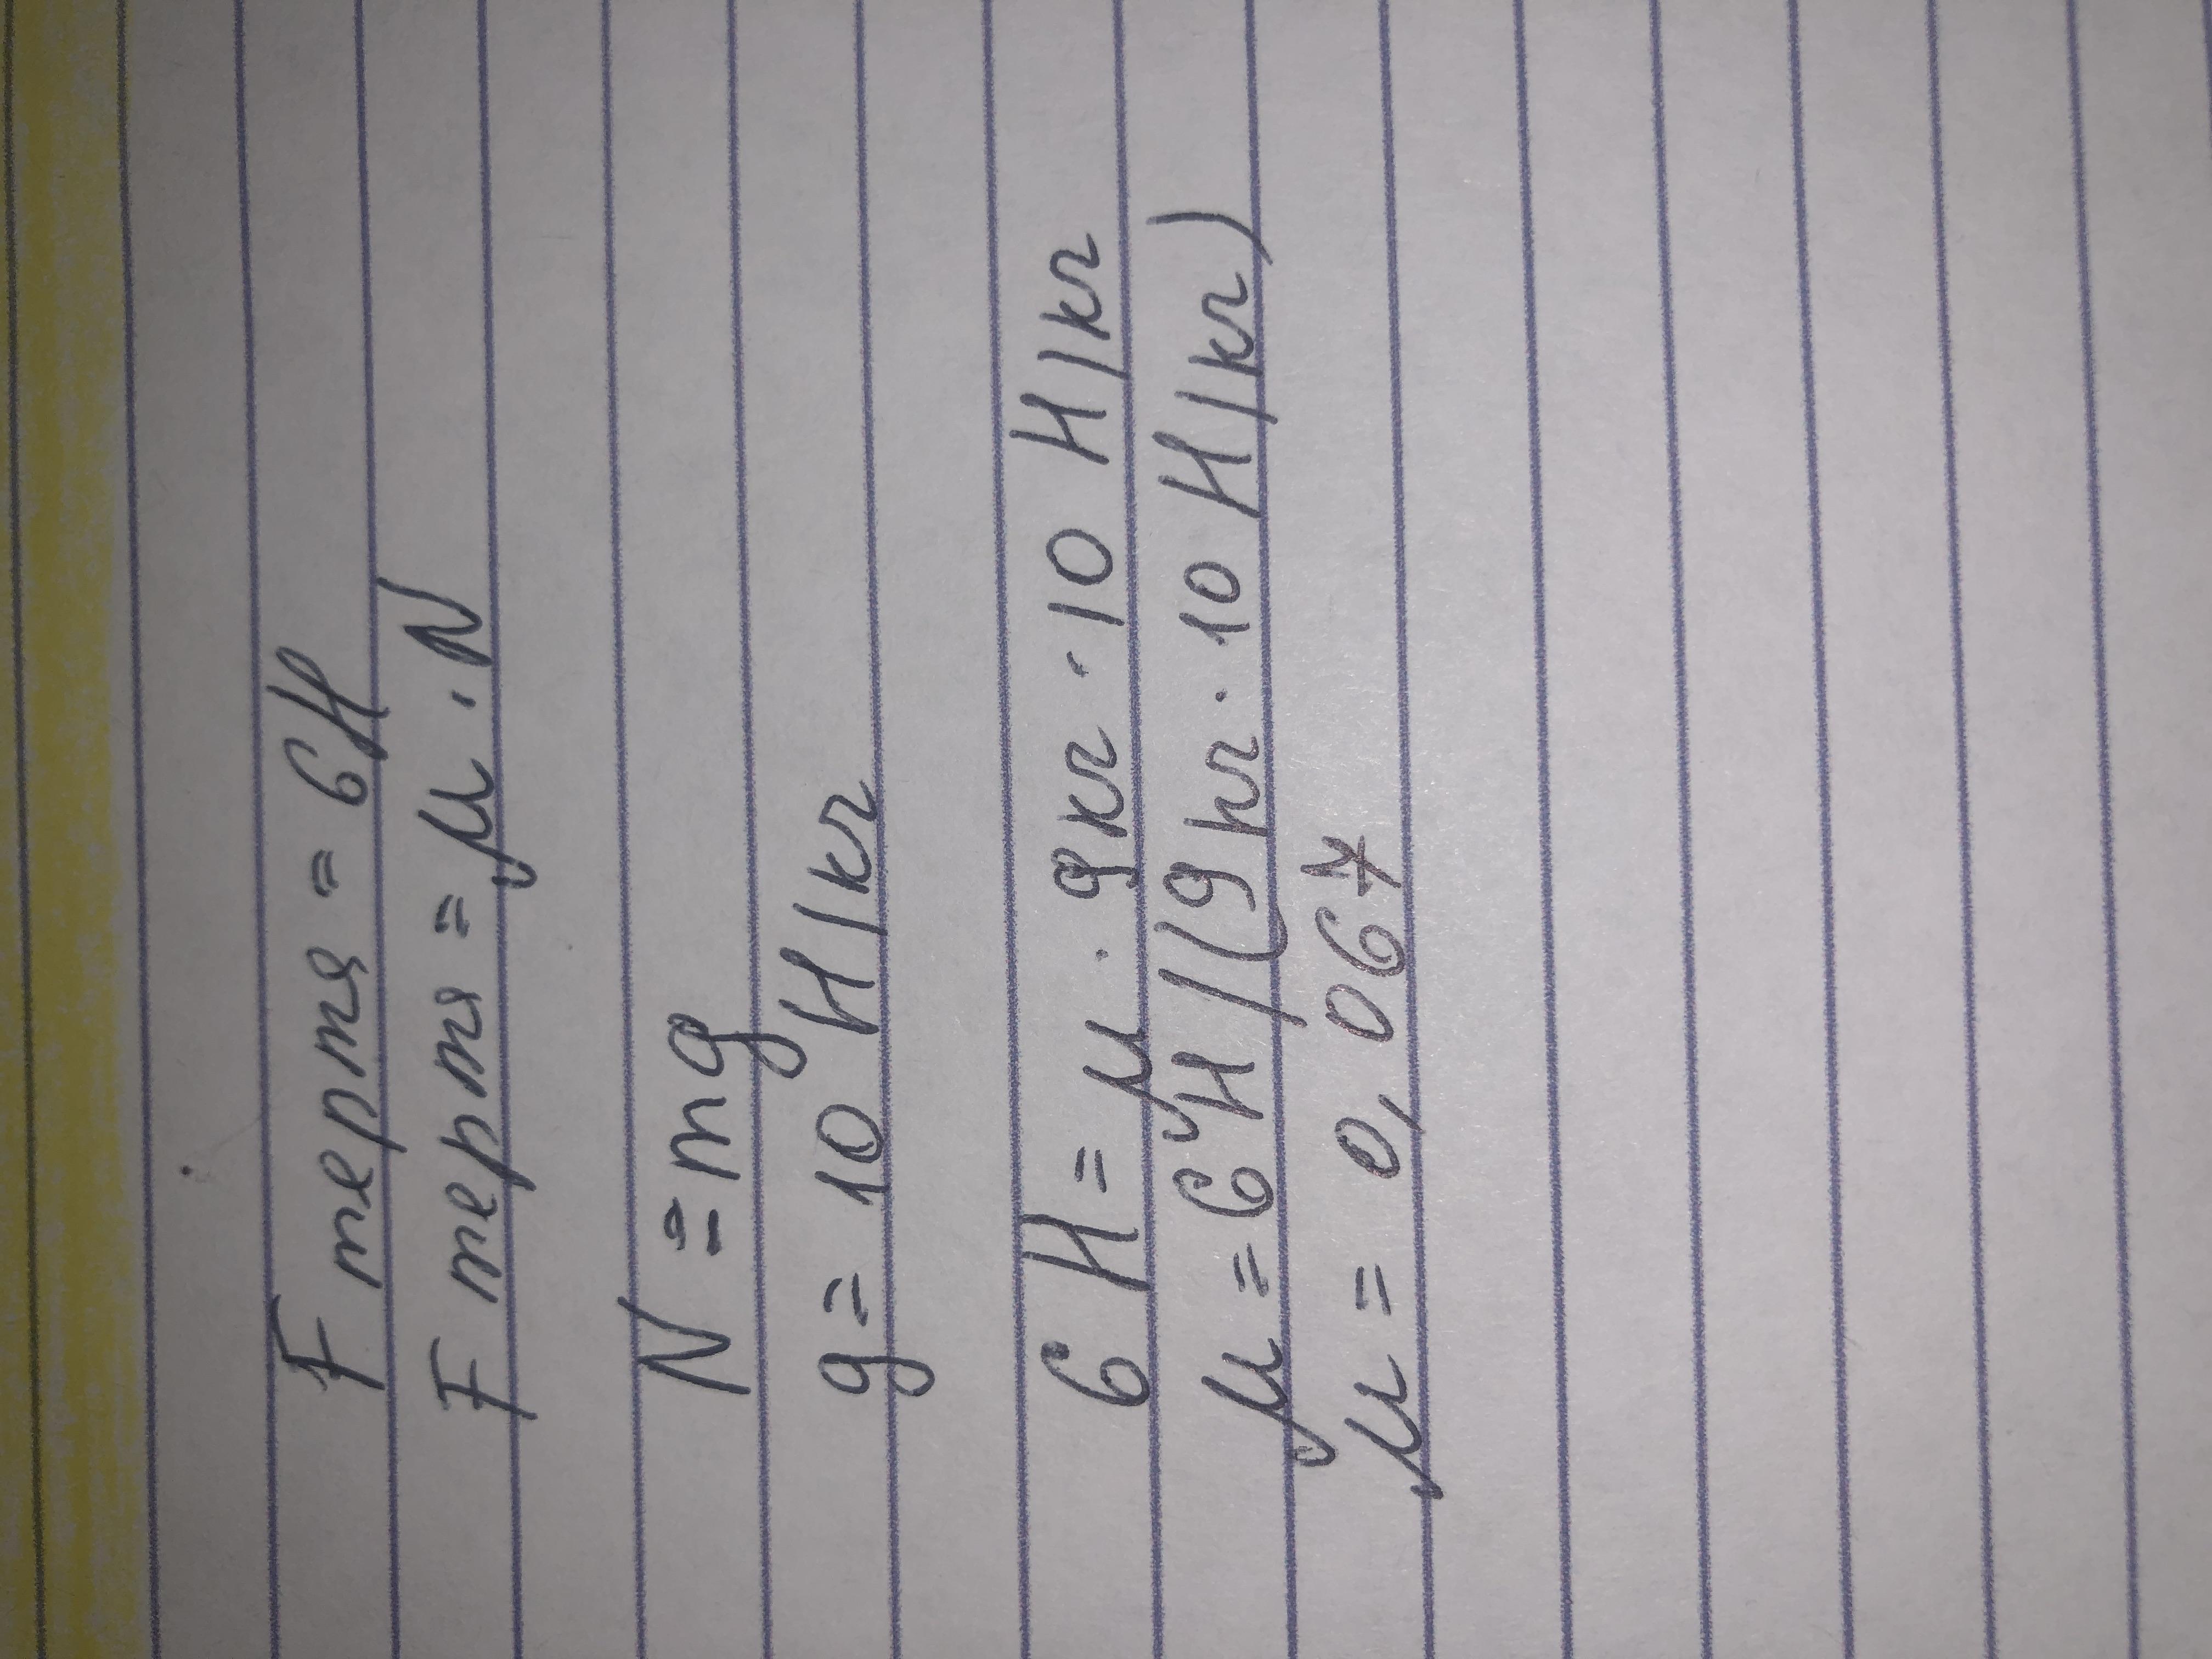 F тертя = 6Н
F тертя = μ · N
N = mg
g = 10 Н/кг
6 Н = μ · 9кг · 10 Н/кг
μ = 6 Н / (9 кг · 10 Н/кг)
μ = 0,067